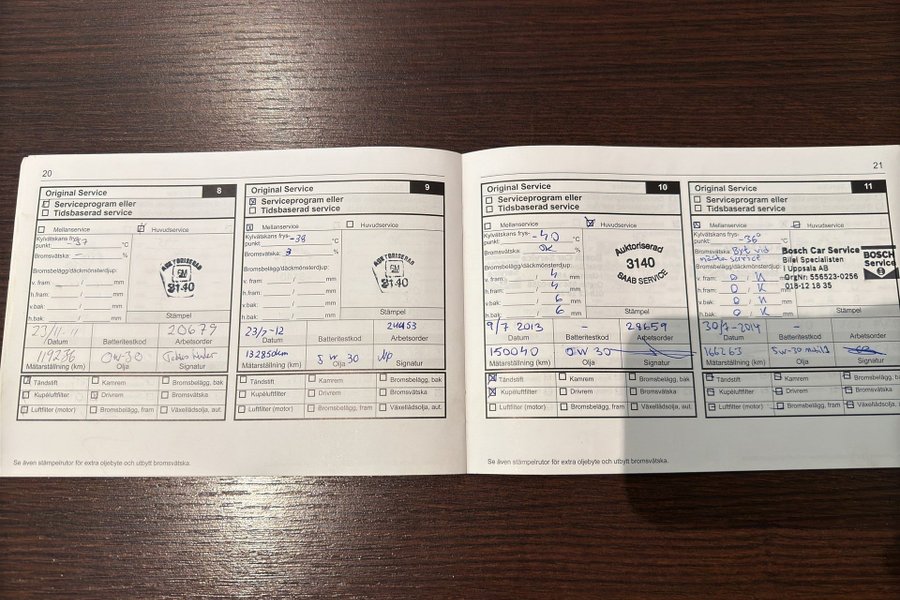 20
Original Service 8
Serviceprogram eller
Tidsbaserad service
Mellanservice Huvudservice
Kylvätskans frys-
punkt: -37 °C
Bromsvätska: - %
Bromsbelägg/däckmönsterdjup:
v. fram: / mm
h.fram: / mm
v.bak: / mm
h.bak: / mm
AUKTORISERAD
GM
3140
Stämpel
23/11-11 20679
Datum Batteritestkod Arbetsorder
119236 0W-30
Mätarställning (km) Olja Signatur
Tändstift Kamrem Bromsbelägg, bak
Kupéluftfilter Drivrem Bromsvätska
Luftfilter (motor) Bromsbelägg, fram Växellådsolja, aut.
Original Service 9
Serviceprogram eller
Tidsbaserad service
Mellanservice Huvudservice
Kylvätskans frys-
punkt: -38 °C
Bromsvätska: %
Bromsbelägg/däckmönsterdjup:
v. fram: / mm
h.fram: / mm
v.bak: / mm
h.bak: / mm
AUKTORISERAD
GM
3140
Stämpel
23/7-12
Datum Batteritestkod Arbetsorder
132850km 5W 30
Mätarställning (km) Olja Signatur
Tändstift Kamrem Bromsbelägg, bak
Kupéluftfilter Drivrem Bromsvätska
Luftfilter (motor) Bromsbelägg, fram Växellådsolja, aut.
Se även stämpelrutor för extra oljebyte och utbytt bromsvätska.
21
Original Service 10
Serviceprogram eller
Tidsbaserad service
Mellanservice Huvudservice
Kylvätskans frys-
punkt: -40 °C
Bromsvätska: OK %
Bromsbelägg/däckmönsterdjup:
v. fram: / 4 mm
h.fram: / 4 mm
v.bak: / 6 mm
h.bak: / 6 mm
Auktoriserad
3140
SAAB SERVICE
Stämpel
9/7 2013 - 28659
Datum Batteritestkod Arbetsorder
150040 0W 30
Mätarställning (km) Olja Signatur
Tändstift Kamrem Bromsbelägg, bak
Kupéluftfilter Drivrem Bromsvätska
Luftfilter (motor) Bromsbelägg, fram Växellådsolja, aut.
Original Service 11
Serviceprogram eller
Tidsbaserad service
Mellanservice Huvudservice
Kylvätskans frys-
punkt: -36° °C
Bromsvätska: Byt vid
nästa service
Bromsbelägg/däckmönsterdjup:
v. fram: O / K
h.fram: O / K
v.bak: O / K
h.bak: O / K
Bosch Car Service
Bilel Specialisten
i Uppsala AB
OrgNr: 556523-0256
018-12 18 35
BOSCH
Service
Stämpel
30/7-2014 -
Datum Batteritestkod Arbetsorder
166263 5W-30
Mätarställning (km) Olja Signatur
Tändstift Kamrem Bromsbelägg, bak
Kupéluftfilter Drivrem Bromsvätska
Luftfilter (motor) Bromsbelägg, fram Växellådsolja, aut.
Se även stämpelrutor för extra oljebyte och utbytt bromsvätska.